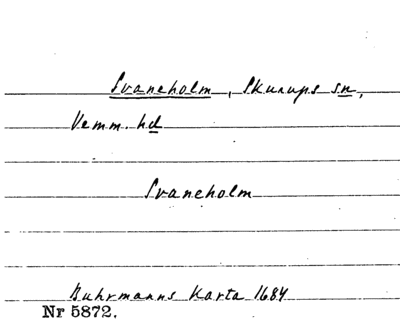 Svaneholm, Skurups sn,
Vemm. hd
Svaneholm
Buhrmanns Karta 1684
Nr 5872.